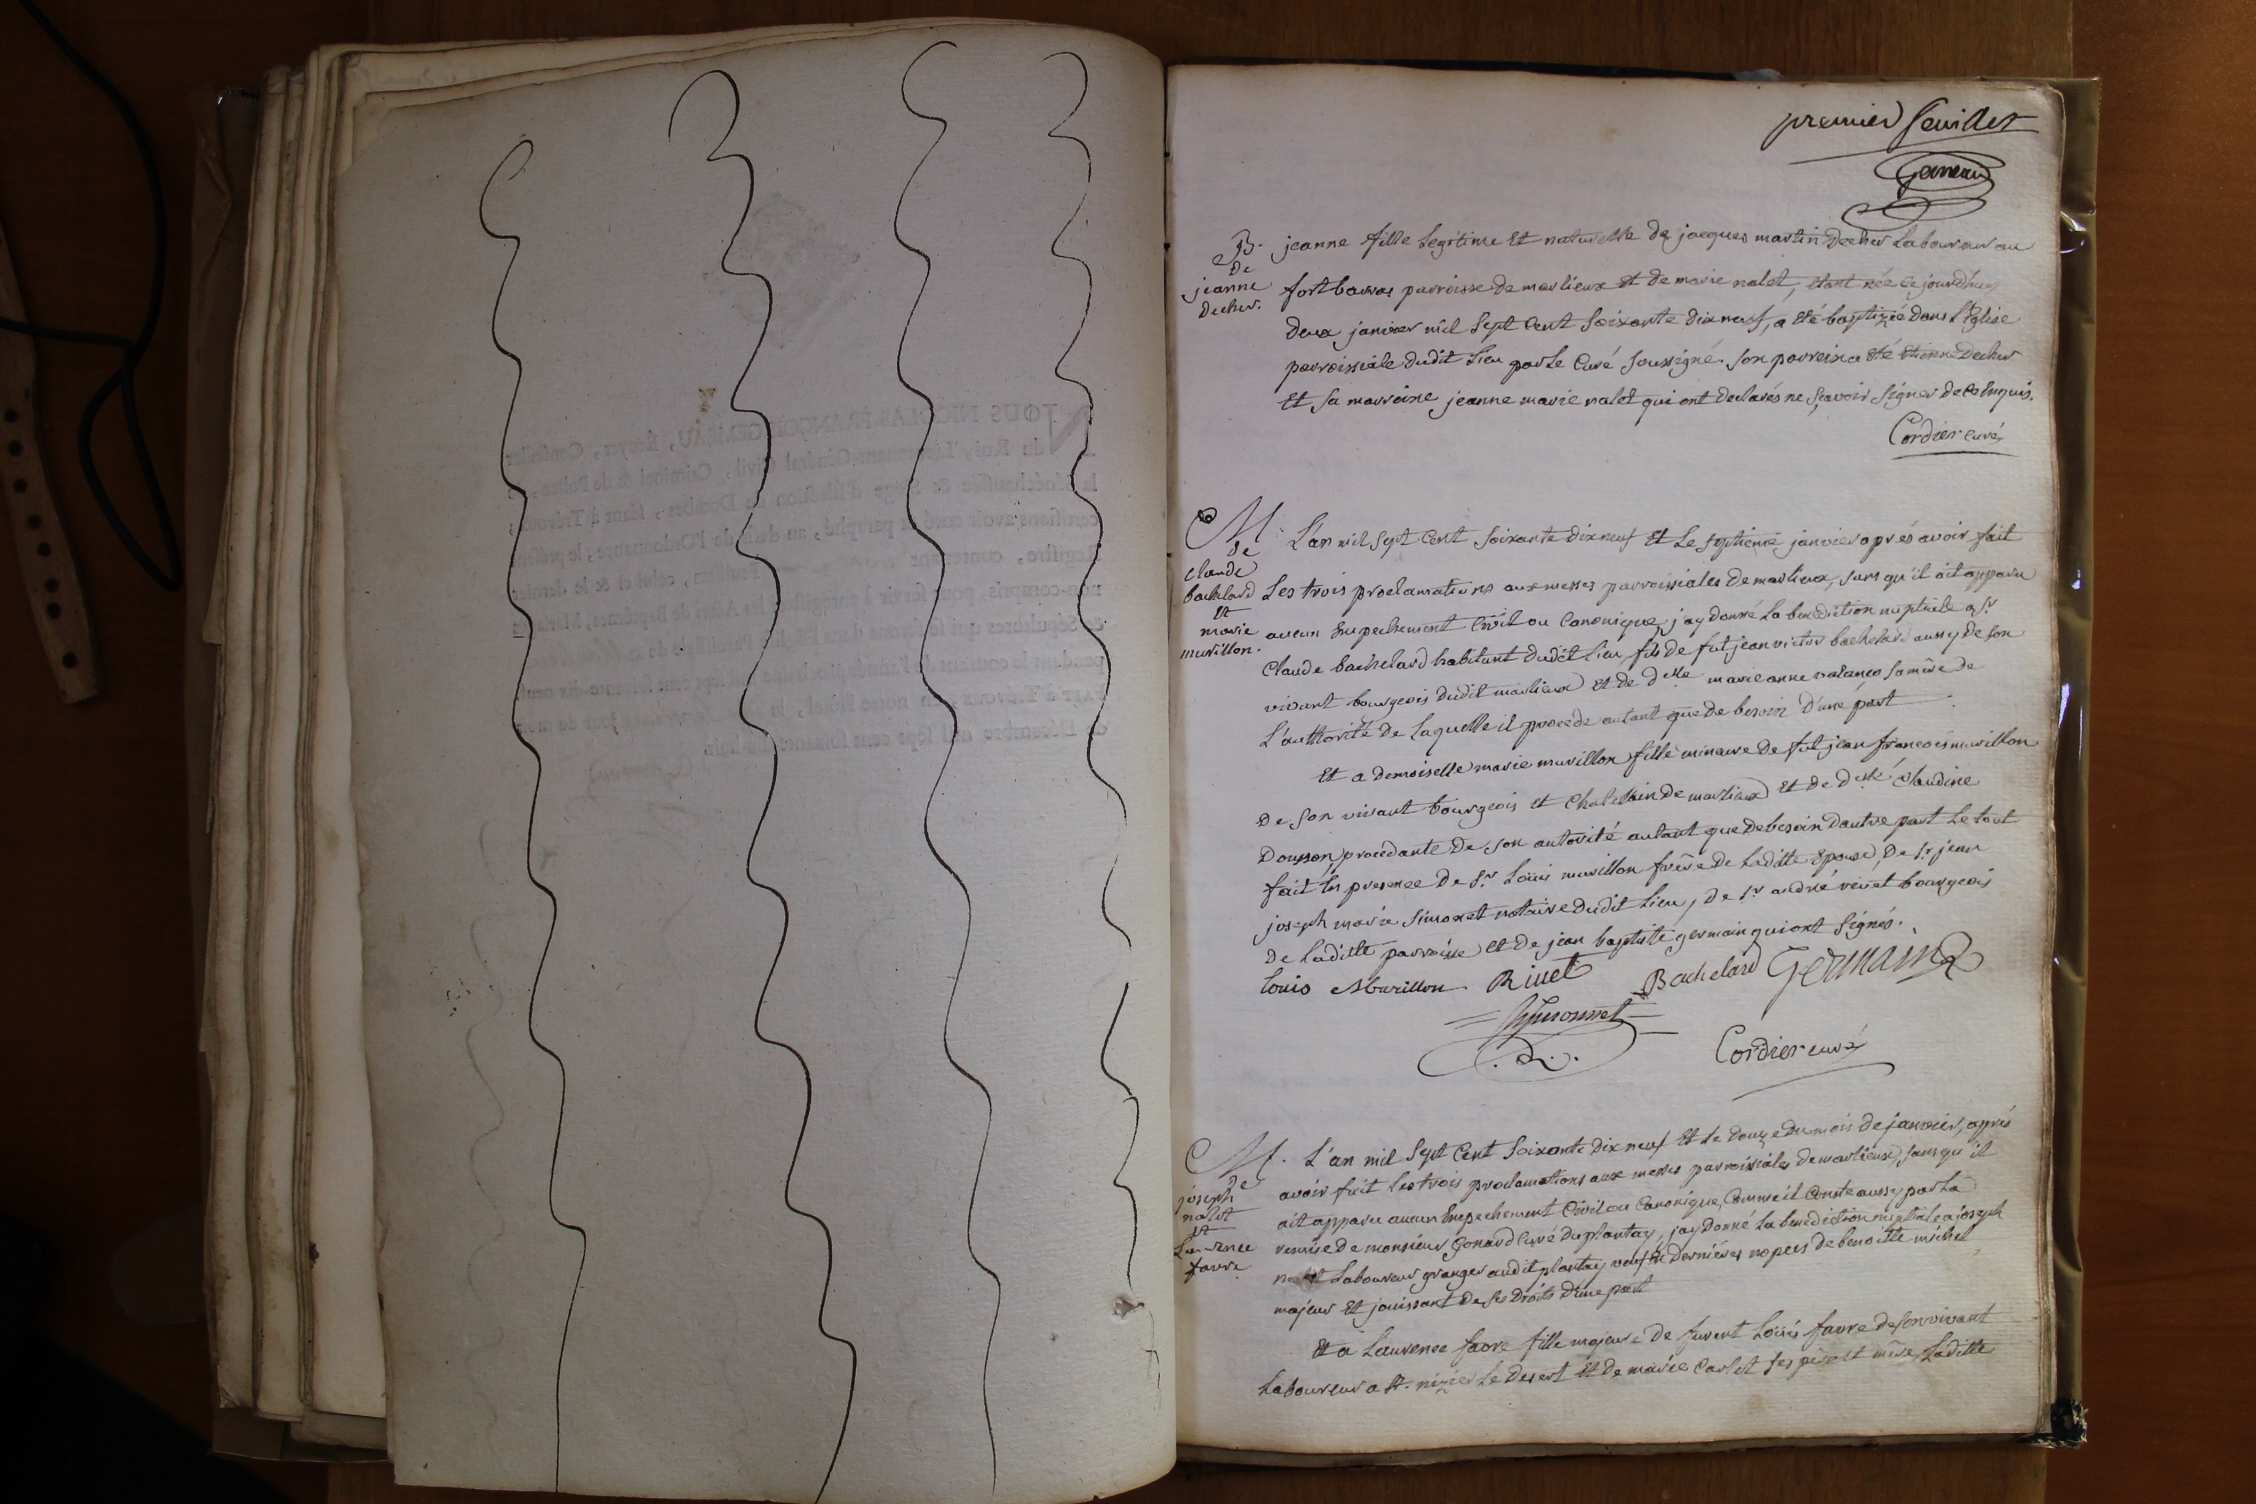 premier feuillet
Gemeau
B.
de
jeanne
decher.
jeanne fille legitime et naturelle de jacques martin decher laboureur au
fort barras parroisse de marlieux et de marie nalet, etant née ce jourd'huy
deux janvier mil sept cent soixante dix neuf, a été baptizée dans l'Eglise
parroissiale dudit lieu par le curé soussigné. son parrein a été etienne decher
et sa marreine jeanne marie nalet qui ont declarés ne sçavoir signer de ce enquis.
Cordier curé
M.
de
claude
bachelard
et
marie
murillon.
L'an mil sept cent soixante dix neuf et le septieme janvier aprés avoir fait
les trois proclamations aux messes parroissiales de marlieux, sans qu'il ait apparu
aucun Empechement civil ou canonique, j'ay donné la benediction nuptiale a sr
claude bachelard habitant dudit lieu, fils de fut jean victor bachelard aussy de son
vivant bourgeois dudit marlieux et de dlle marie anne valance sa mère de
l'authorité de laquelle il procede autant que de besoin d'une part
et a demoiselle marie murillon fille mineure de fut jean françois murillon
de son vivant bourgeois et chatelain de marlieux et de dlle claudine
dousson, procedante de son autorité autant que de besoin d'autre part le tout
fait en presence de sr Louis murillon frère de laditte Epouse, de sr jean
joseph marie simonet notaire dudit lieu, de sr andré rivet bourgeois
de laditte parroisse et de jean baptiste germain qui ont signés.
louis Murillon Rivet Bachelard Germain
Simonnet
Cordier curé
M.
de
joseph
nalet
et
Laurence
favre
L'an mil sept cent soixante dix neuf et le douze du mois de janvier, aprés
avoir fait les trois proclamations aux messes parroissiales de marlieux, sans qu'il
ait apparu aucun Empechement civil ou canonique, comme il conste aussy par la
remise de monsieur Gonard curé du plantay, j'ay donné la benediction nuptiale a joseph
nalet laboureur granger audit plantay veuf en dernières nopces de benoitte michel
majeur et jouissant de ses droits d'une part
et a Laurence favre fille majeure de furent Loüis favre de son vivant
laboureur a st. nizier le desert et de marie carlet ses père et mère, laditte